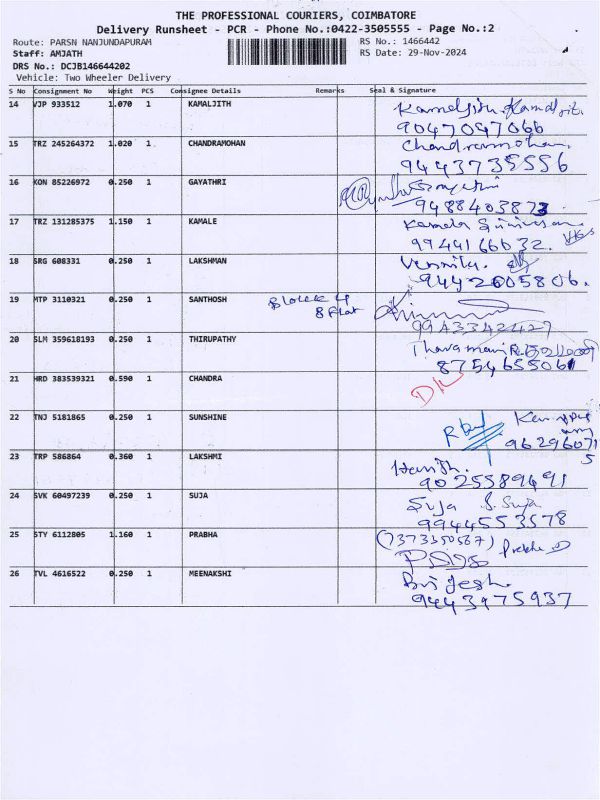 THE PROFESSIONAL COURIERS, COIMBATORE
Delivery Runsheet - PCR - Phone No.:0422-3505555 - Page No.:2
Route: PARSN NANJUNDAPURAM RS No.: 1466442
Staff: AMJATH RS Date: 29-Nov-2024
DRS No.: DCJB146644202
Vehicle: Two Wheeler Delivery
S No Consignment No Weight PCS Consignee Details Remarks Seal & Signature
14 VJP 933512 1.070 1 KAMALJITH Kamaljith
9047047066
15 TRZ 245264372 1.020 1 CHANDRAMOHAN Chandramohan
9443735556
16 KON 85226972 0.250 1 GAYATHRI
9488403873
17 TRZ 131285375 1.150 1 KAMALE Kamala Srinivasan
9944166632.
18 SRG 608331 0.250 1 LAKSHMAN Vennila.
9442605806.
19 MTP 3110321 0.250 1 SANTHOSH Block 4
8 Flat
9943342427
20 SLM 359618193 0.250 1 THIRUPATHY Tharamani
8754655061
21 HRD 383539321 0.590 1 CHANDRA DL
22 TNJ 5181865 0.250 1 SUNSHINE
96296071
5
23 TRP 586864 0.360 1 LAKSHMI Harish.
9025589491
24 SVK 60497239 0.250 1 SUJA Suja S. Suja
9944553578
25 STY 6112805 1.160 1 PRABHA (7373350587) Prabha
26 TVL 4616522 0.250 1 MEENAKSHI Brijesh.
9443975937